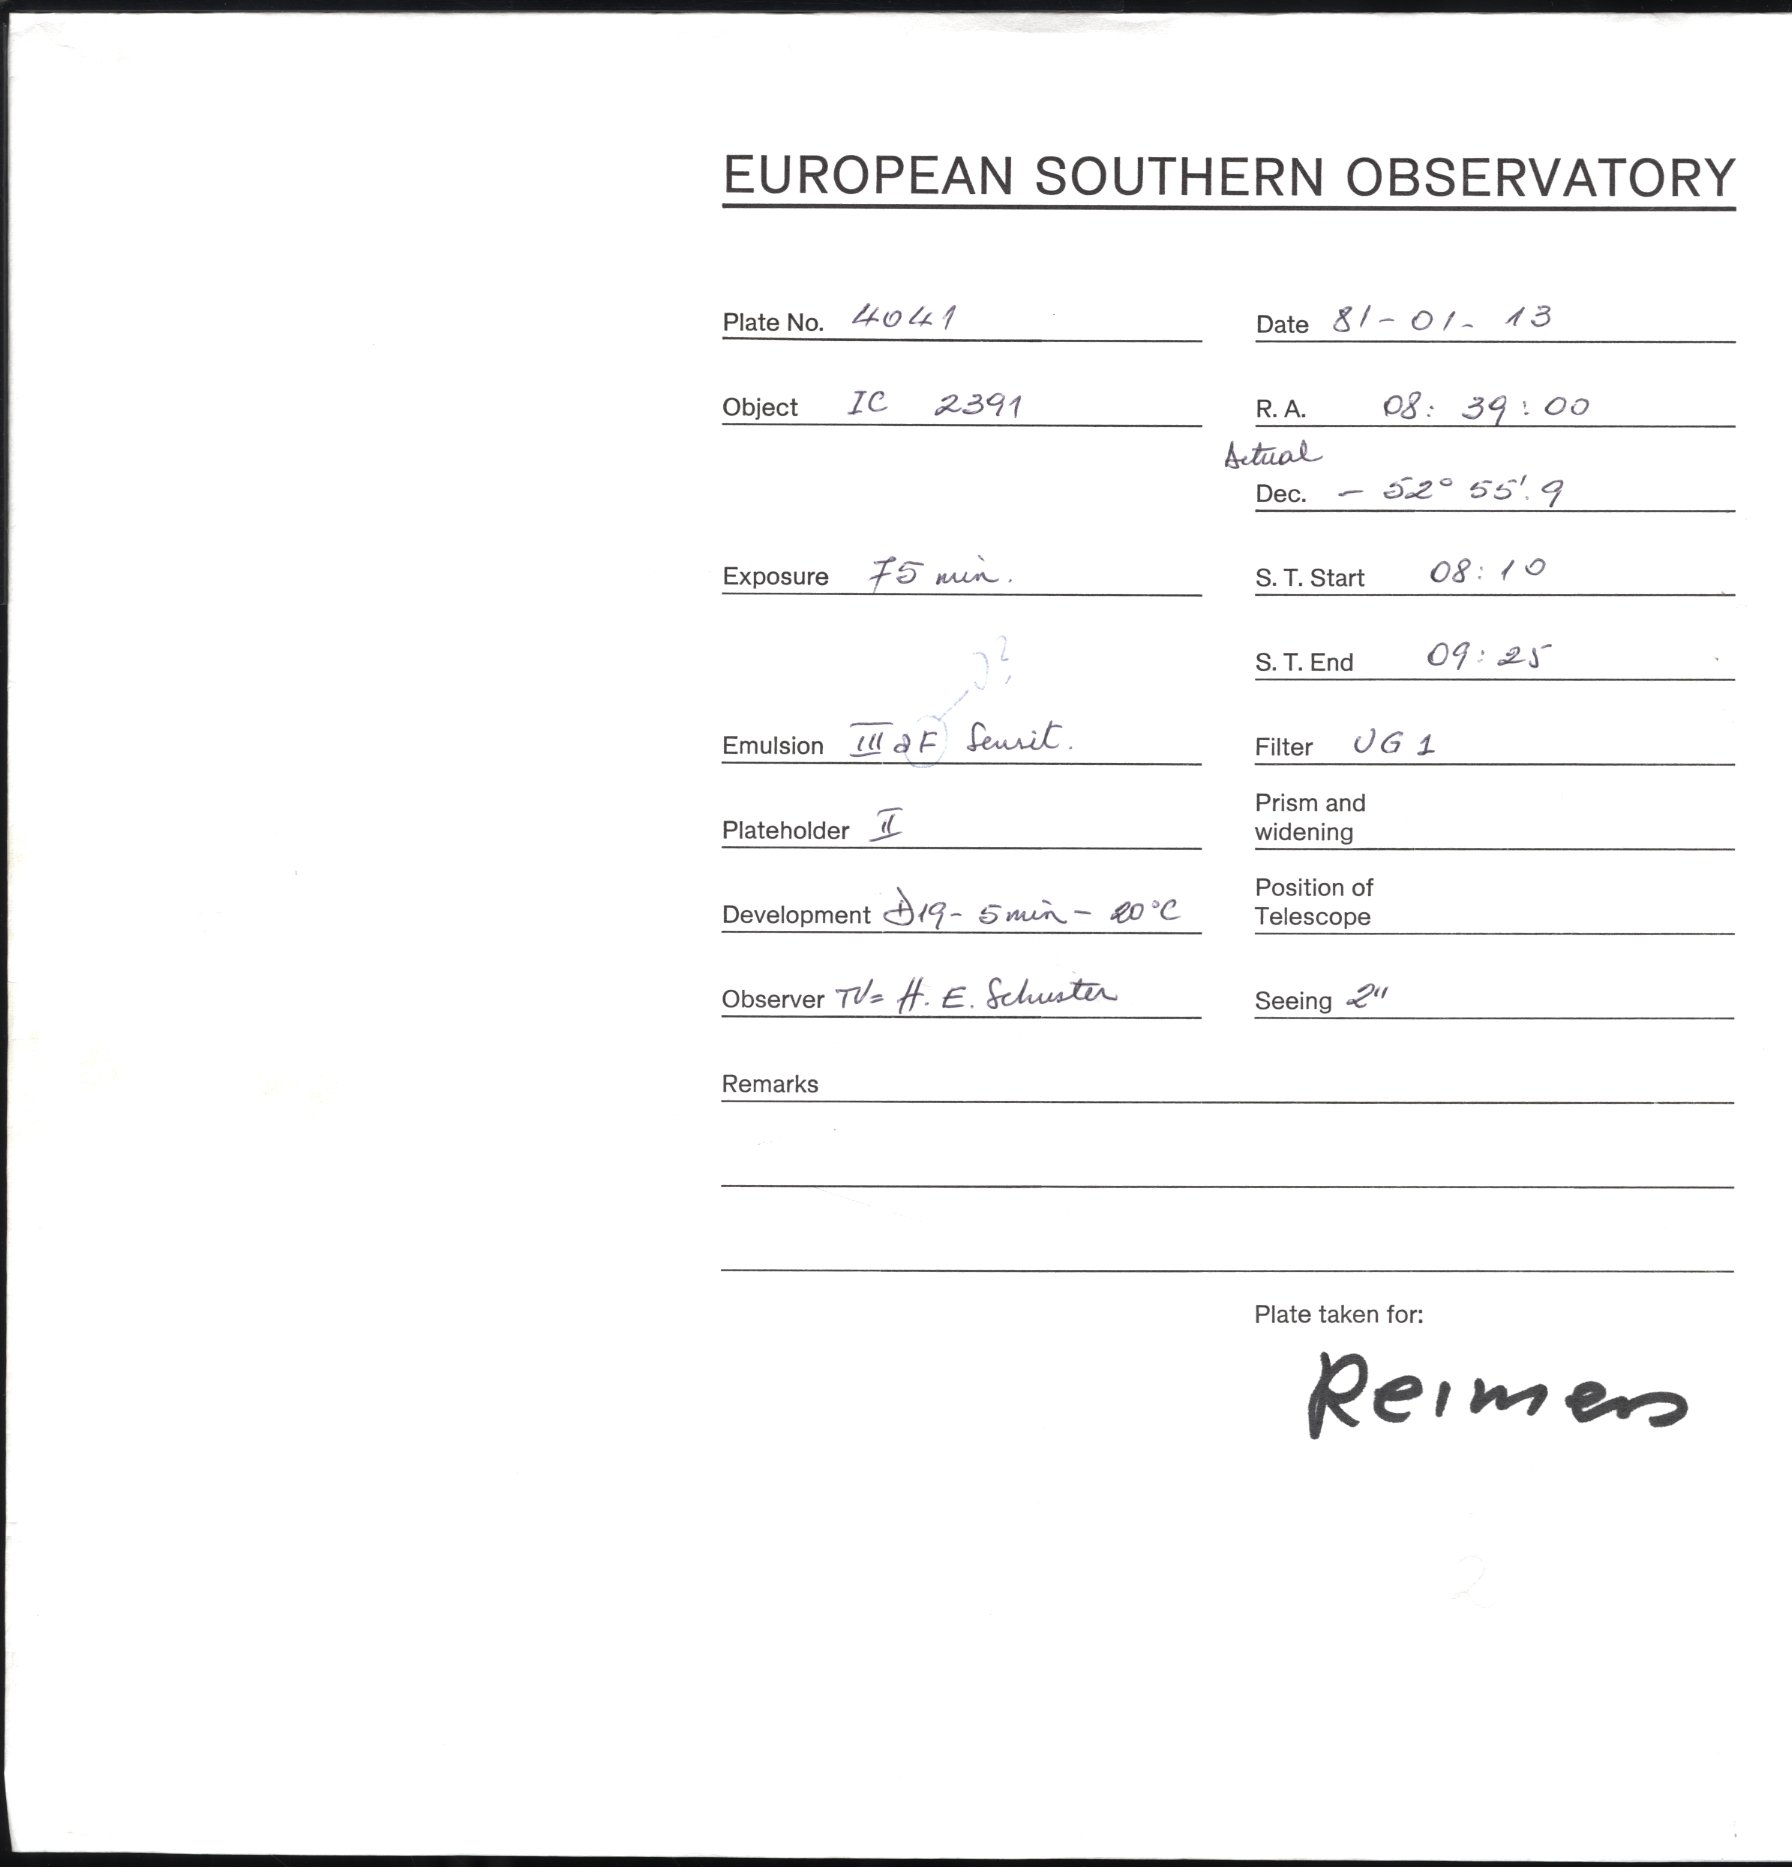 EUROPEAN SOUTHERN OBSERVATORY
Plate No. 4041
Date 81-01-13
Object IC 2391
R. A. 08: 39: 00
Actual
Dec. - 52° 55'. 9
Exposure 75 min.
S. T. Start 08: 10
S. T. End 09: 25
J?
Emulsion III a F Sensit.
Filter UG 1
Plateholder II
Prism and
widening
Development D19 - 5 min - 20°C
Position of
Telescope
Observer TV= H. E. Schuster
Seeing 2"
Remarks
Plate taken for:
Reimers
2